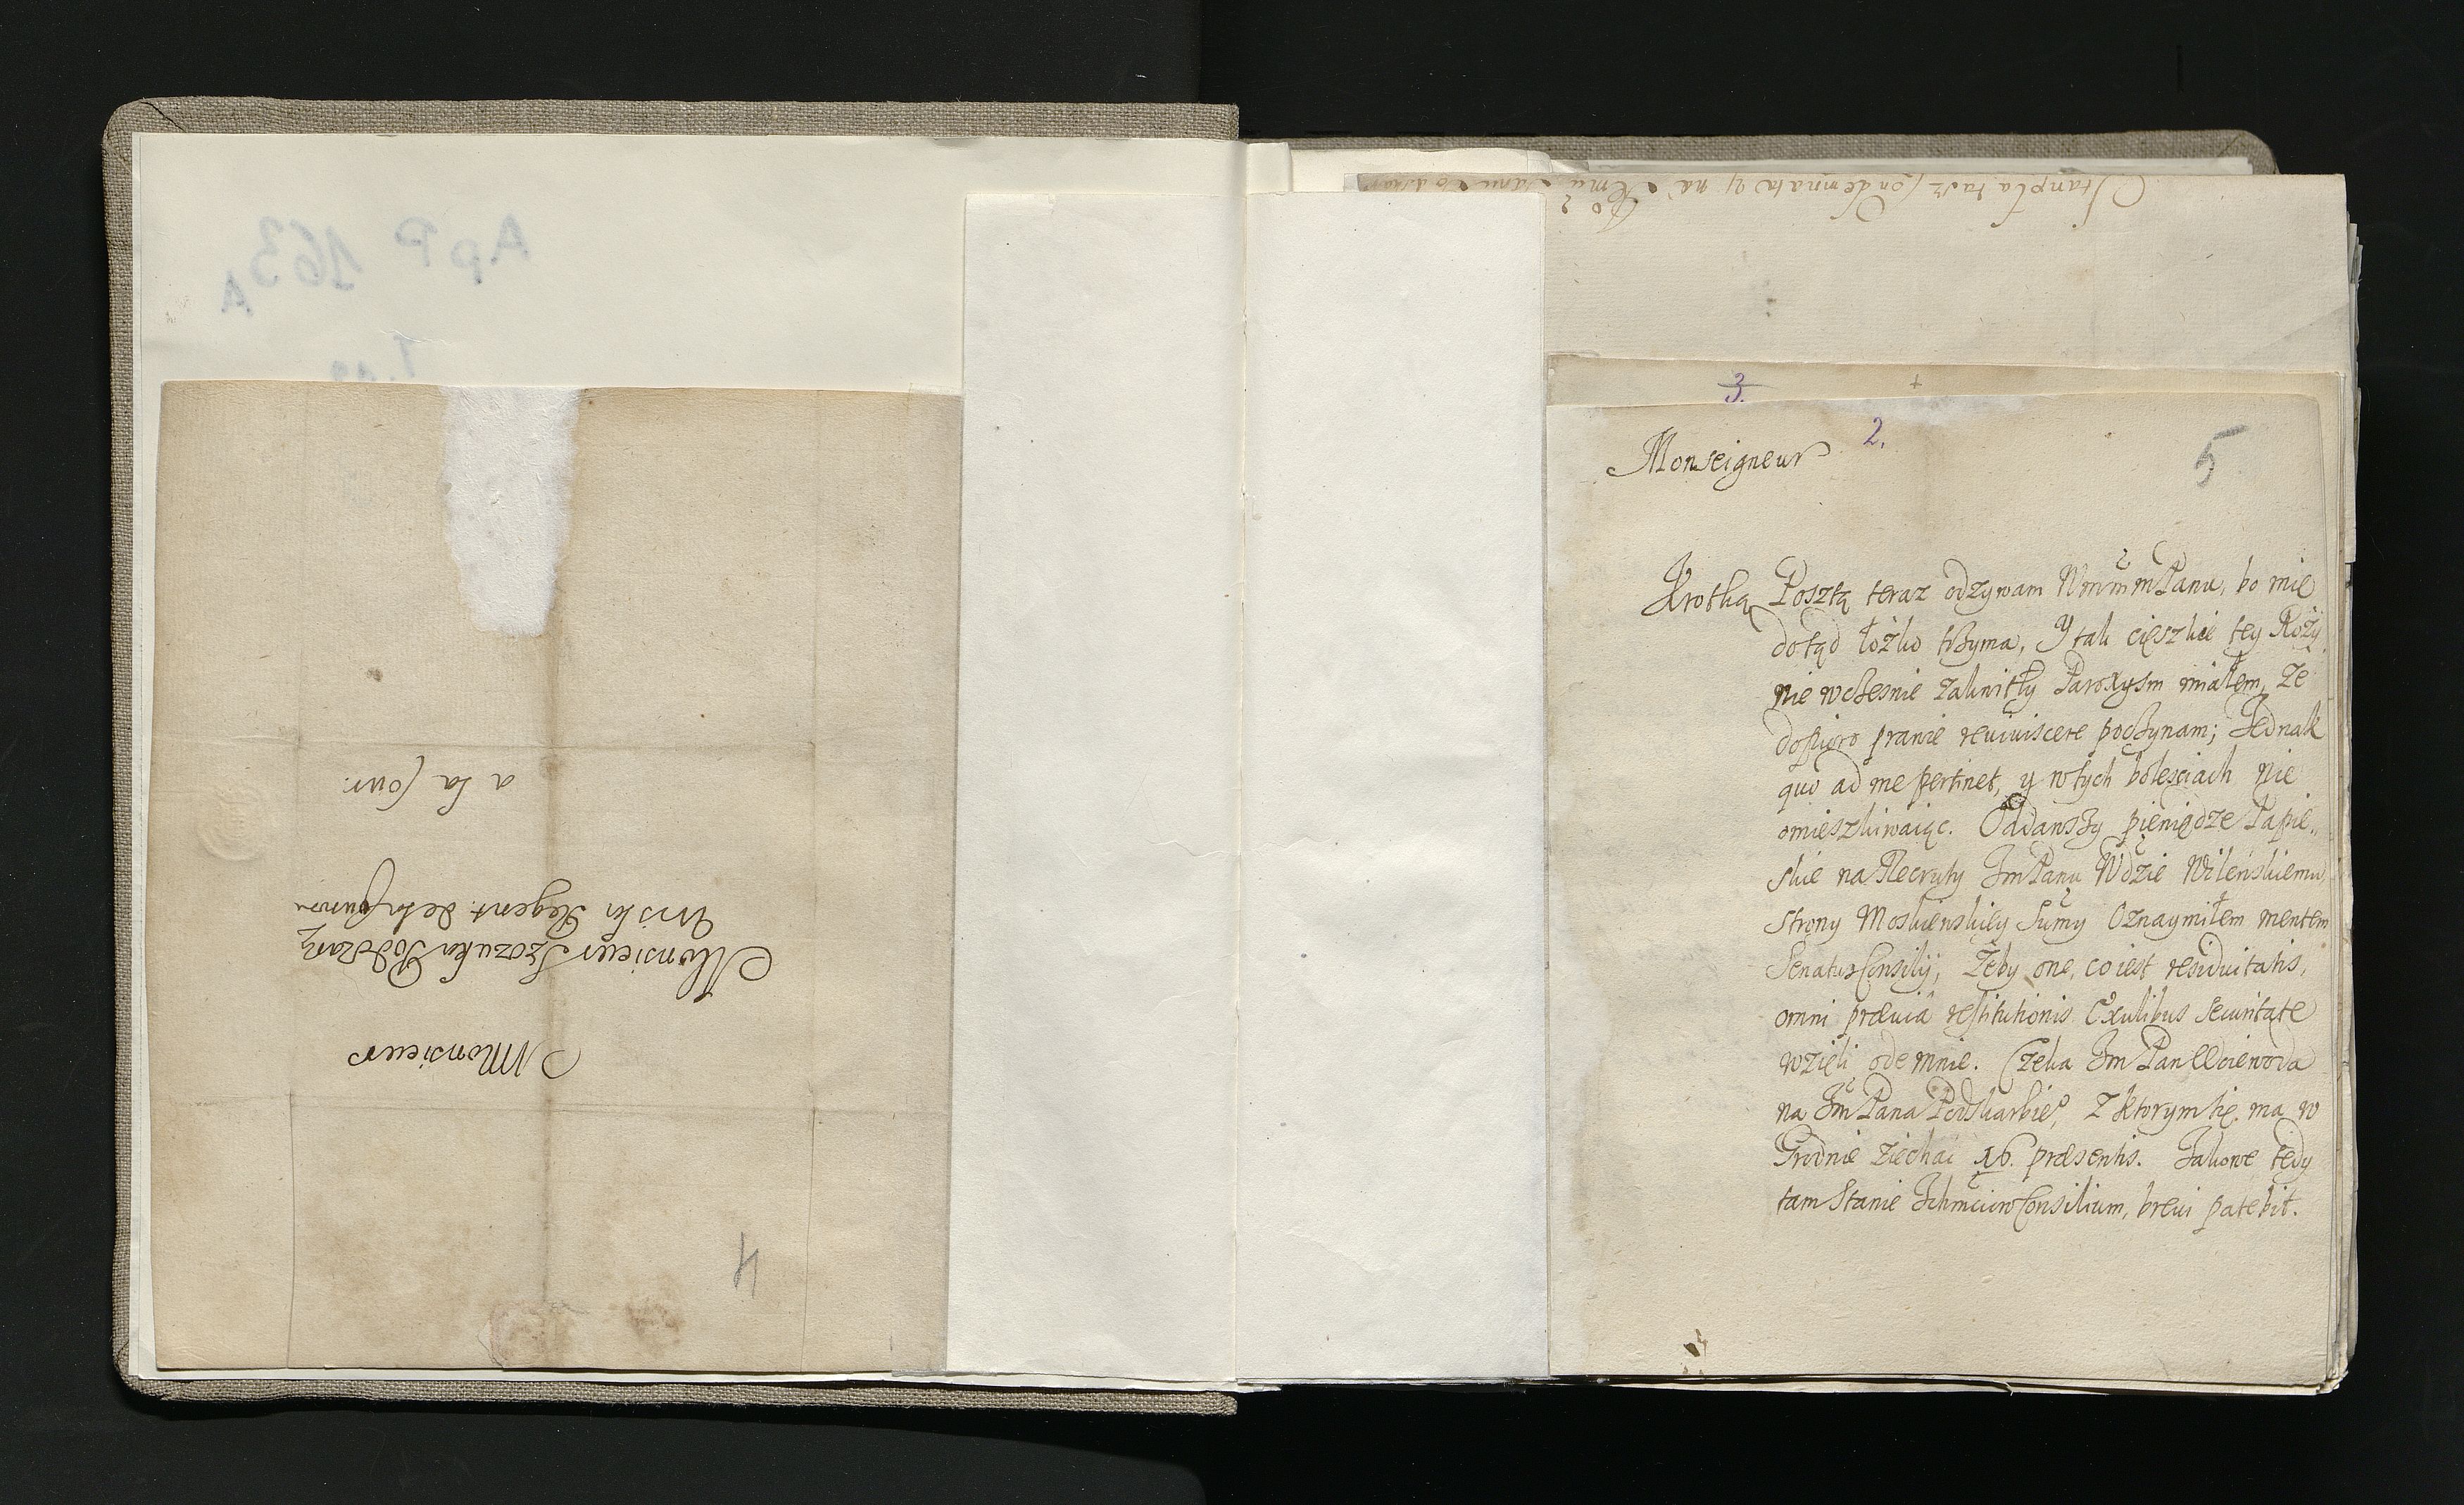 Monsieur
Monsieur Szczuka Podstar
Wiski Regent de la
a la Cour.
4
3.
2.
5
Monseigneur
Krotką Pocztą teraz odzywam Wmm mPanu, bo mie
dotąd łożko trzyma, Y tak cięszkie tey Roży
nie wcżesnie zakwitły Paroxysm miałem, że
dopiero prawie reuiuiscere poczynam; Jednak
quo ad me pertinet, y w tych bolesciach nie
omieszkiwaiąc. Oddawszy pieniądze Papie„
skie na Recruty JmPanu Wdzie Wilenskiemu,
strony Moskiewskiey Sumy Oznaymiłem mentem
Senatus Consilij, Żeby one, co iest residuitatis,
omni præuiâ restitutionis Exulibus securitate
wzięli odemnie. Czeka Jm Pan Woiewoda
na Jm Pana Podskarbieo, z ktorym się ma w
Grodnie ziechac 16. præsentis. Jakowe tedy
tam stanie Ichmciow Consilium, breui patebit.